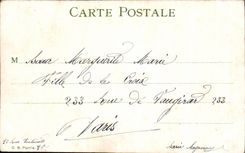 CARTE POSTALE
M Sœur Marguerite Marie
Fille de la Croix
233 rue de Vaugirard 233
Paris